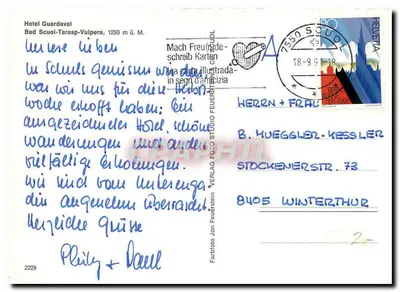 Hotel Guardaval
Bad Scuol-Tarasp-Vulpera, 1250 m ü. M.
Unsere Lieben
In Schuls geniessen wir das,
was wir uns für diese Herbst-
woche erhofft haben: Ein
ausgezeichnetes Hotel, schöne
Wanderungen und andere
vielfältige Erholungen.
Wir sind vom Unterenga-
din angenehm überrascht.
Herzliche Grüsse
2229
Mach Freunde
schreib Karten
illustrada
in segn d'amicizia
A
7550 SCUOL
18.-9.
HELVETIA
HERRN + FRAU
B. HUEGGLER-KESSLER
STOCKENERSTR. 73
8405 WINTERTHUR
2.-
Farbfoto Jon Feuerstein
VERLAG FOTO STUDIO FEUERSTEIN SCUOL